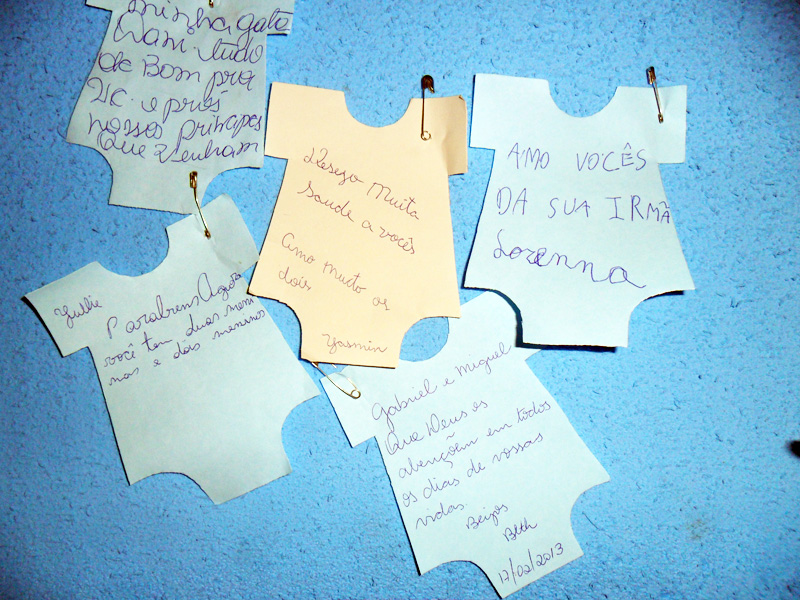 minha gata
Vam tudo
de Bom pra
Vc. e prus
nossos principes
Que venham
Desezo Muita
saude a vocês
Amo muito os
dois
Yasmin
AMO VOCÊS
DA SUA IRMÃ
Lorenna
Yullie
Parabens Agora
você tem duas meni
nas e dois meninos
Gabriel e Miguel
Que Deus os
abençõem em todos
os dias de vossas
vidas.
Beijos
Beth
17/02/2013